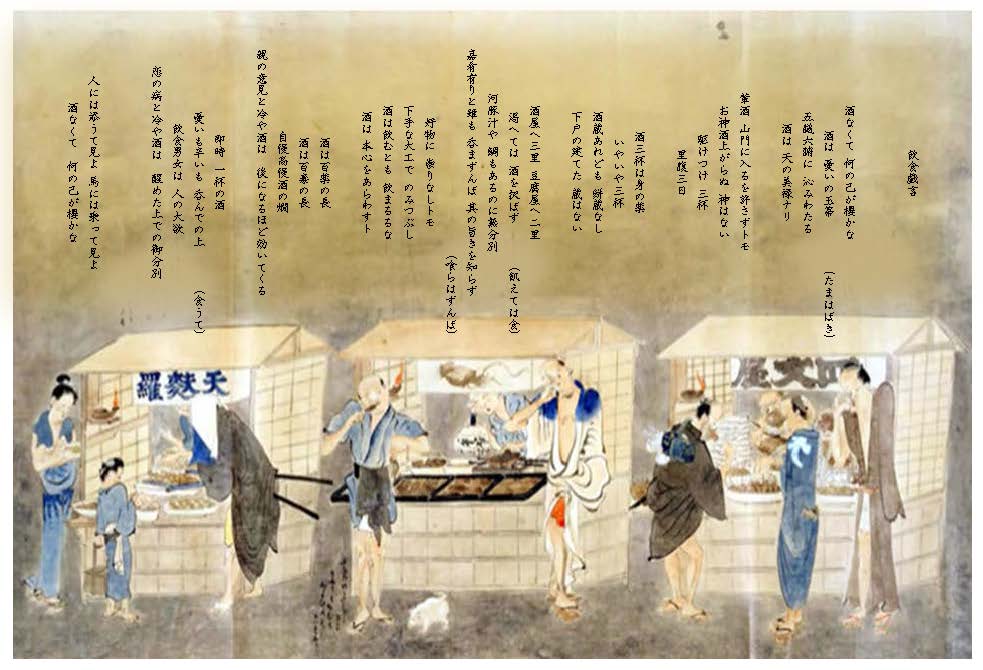 飲食戯言
酒なくて 何の己が櫻かな
酒は 憂いの玉箒 (たまはばき)
五臓六腑に 沁みわたる
酒は 天の美禄ナリ
葷酒 山門に入るを許さずトモ
お神酒上がらぬ 神はない
駆けつけ 三杯
里腹三日
酒三杯は身の薬
いやいや三杯
酒蔵あれども 餅蔵なし
下戸の建てた 蔵はない
酒屋へ三里 豆腐屋へ二里
渇へては 酒を択ばず (飢えては食)
河豚汁や 鯛もあるのに無分別
嘉肴有りと雖も 呑まずんば 其の旨きを知らず
(喰らはずんば)
好物に 祟りなしトモ
下手な大工で のみつぶし
酒は飲むとも 飲まるるな
酒は 本心をあらわすト
酒は百薬の長
酒は百毒の長
自慢高慢酒の燗
親の意見と冷や酒は 後になるほど効いてくる
即時 一杯の酒
憂いも辛いも 呑んでの上 (食うて)
飲食男女は 人の大欲
恋の病と冷や酒は 醒めた上での御分別
人には添うて見よ 馬には乗って見よ
酒なくて 何の己が櫻かな
四文屋
天麩羅